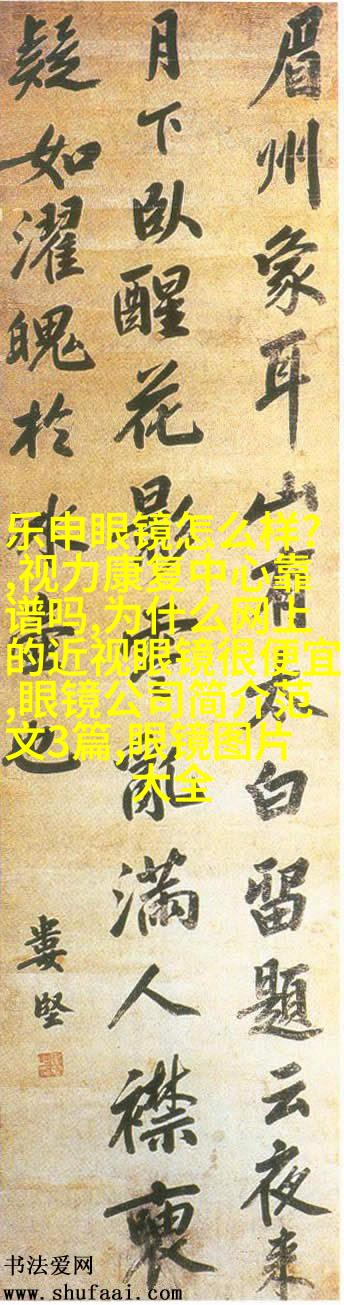 眉州象耳山有太白留題云夜来
月下臥醒花影零亂滿人襟
疑如濯魄於冰壺也
婁堅
乐申眼镜怎么样?
,视力康复中心靠
谱吗,为什么网上
的近视眼镜很便宜
,眼镜公司简介范
文3篇,眼镜图片
大全
书法爱网
www.shufaai.com